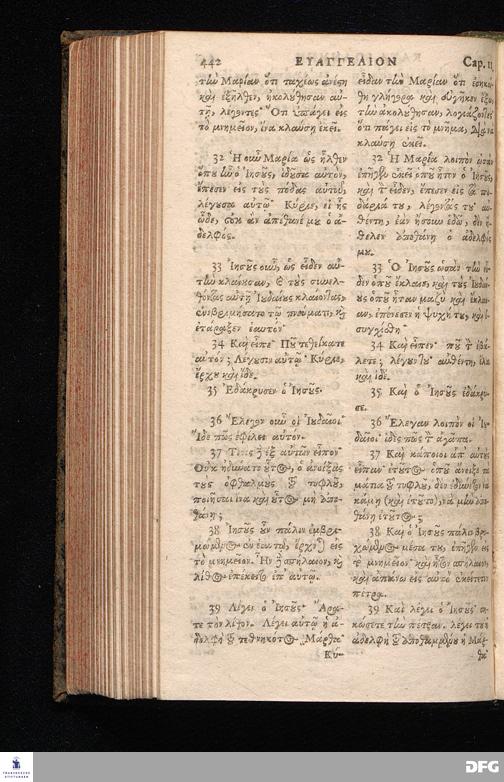 442 ΕΥΑΓΓΕΛΙΟΝ Cap. 11
τὴν Μαρίαν ὅτι ταχέως ἀνέστη
καὶ ἐξῆλθεν, ἠκολούθησαν αὐ-
τῇ, λέγοντες· Ὅτι ὑπάγει εἰς
τὸ μνημεῖον, ἵνα κλαύσῃ ἐκεῖ.
32 Ἡ οὖν Μαρία ὡς ἦλθεν
ὅπου ἦν ὁ Ἰησοῦς, ἰδοῦσα αὐτὸν,
ἔπεσεν εἰς τοὺς πόδας αὐτοῦ,
λέγουσα αὐτῷ· Κύριε, εἰ ἦς
ὧδε, οὐκ ἂν ἀπέθανέ μου ὁ ἀ-
δελφός.
33 Ἰησοῦς οὖν, ὡς εἶδεν αὐ-
τὴν κλαίουσαν, καὶ τοὺς συνελ-
θόντας αὐτῇ Ἰουδαίους κλαίοντας,
ἐνεβριμήσατο τῷ πνεύματι, καὶ
ἐτάραξεν ἑαυτόν·
34 Καὶ εἶπε· Ποῦ τεθείκατε
αὐτόν; Λέγουσιν αὐτῷ· Κύριε,
ἔρχου καὶ ἴδε.
35 Ἐδάκρυσεν ὁ Ἰησοῦς.
36 Ἔλεγον οὖν οἱ Ἰουδαῖοι·
Ἴδε πῶς ἐφίλει αὐτόν.
37 Τινὲς δὲ ἐξ αὐτῶν εἶπον·
Οὐκ ἠδύνατο οὗτος, ὁ ἀνοίξας
τοὺς ὀφθαλμοὺς τοῦ τυφλοῦ,
ποιῆσαι ἵνα καὶ οὗτος μὴ ἀπο-
θάνῃ;
38 Ἰησοῦς οὖν πάλιν ἐμβρι-
μώμενος ἐν ἑαυτῷ, ἔρχεται εἰς
τὸ μνημεῖον. Ἦν δὲ σπήλαιον, καὶ
λίθος ἐπέκειτο ἐπ' αὐτῷ.
39 Λέγει ὁ Ἰησοῦς· Ἄρα-
τε τὸν λίθον. Λέγει αὐτῷ ἡ ἀ-
δελφὴ τοῦ τεθνηκότος Μάρθα·
Κύ-
εἶδαν τὴν Μαρίαν ὅτι ἐσηκώ-
θη γλήγορα καὶ εὐγῆκεν ἔξω
τὴν ἀκολούθησαν, λογιάζοντες
ὅτι πάγει εἰς τὸ μνῆμα, διὰ νὰ
κλαύσῃ ἐκεῖ.
32 Ἡ Μαρία λοιπὸν ὡσὰν
ἐπῆγεν ἐκεῖ ὁποῦ ἦτον ὁ Ἰησοῦς,
καὶ τὸν εἶδεν, ἔπεσεν εἰς τὰ πο-
δάριά του, λέγωντάς του· αὐ-
θέντη, ἐὰν ἤσουν ἐδῶ, δὲν ἤ-
θελεν ἀποθάνῃ ὁ ἀδελφός
μου.
33 Ὁ Ἰησοῦς ὡσὰν τὴν εἶ-
δεν ὁποῦ ἔκλαιε, καὶ τοὺς Ἰουδαί-
ους ὁποῦ ἦταν μαζὺ καὶ ἔκλαι-
αν, ἐπόνεσεν ἡ ψυχή του, καὶ ἐ-
συγχίσθη·
34 Καὶ εἶπεν· ποῦ τὸν ἐβά-
λετε; λέγουν του· αὐθέντη, ἔλα
καὶ ἰδέ.
35 Καὶ ὁ Ἰησοῦς ἐδάκρυ-
σε.
36 Ἔλεγαν λοιπὸν οἱ Ἰου-
δαῖοι· ἰδὲς πῶς τὸν ἀγάπα.
37 Καὶ κάποιοι ἀπ' αὐτοὺς
εἶπαν· ἐτοῦτος ὁποῦ ἄνοιξε τὰ
μάτια τοῦ τυφλοῦ, δὲν ἐδύνετον νὰ
κάμῃ (καὶ ἐτοῦτο), νὰ μὴν ἀπο-
θάνῃ ἐτοῦτος;
38 Καὶ ὁ Ἰησοῦς πάλιν βρυ-
χώμενος μέσα του, ἐπῆγεν εἰς
τὸ μνημεῖον· καὶ ἦτον σπήλαιον,
καὶ ἀπάνω εἰς αὐτὸ ἐκείτετο
πέτρα.
39 Καὶ λέγει ὁ Ἰησοῦς· ση-
κώσετε τὴν πέτραν. λέγει του ἡ
ἀδελφὴ τοῦ ἀποθαμένου ἡ Μάρ-
θα·
FRANCKESCHE
STIFTUNGEN
DFG